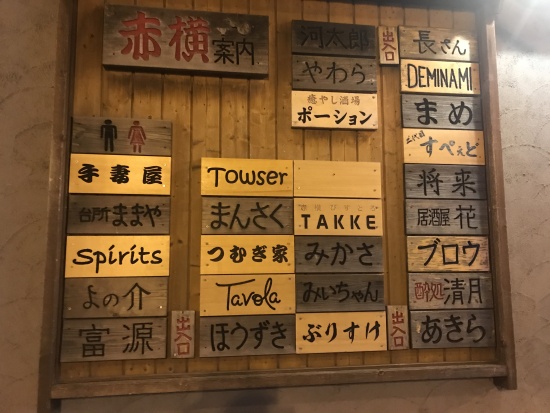 赤横案内
手毒屋
台所ままや
Spirits
よの介
富源
出入口
Towser
まんさく
つむぎ家
Tavola
ほうずき
TAKKE
みかさ
みいちゃん
ぶりすけ
河太郎
やわら
癒やし酒場
ポーション
出入口
出入口
長さん
DEMINAMI
まめ
二代目
すぺえど
将来
居酒屋 花
ブロウ
酔処 清月
あきら